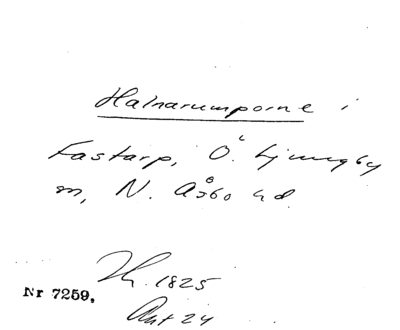 Halnarumporne i
Fastarp, Ö. Ljungby
sn, N. Åsbo hd.
1825
Nr 7259.
Akt 24